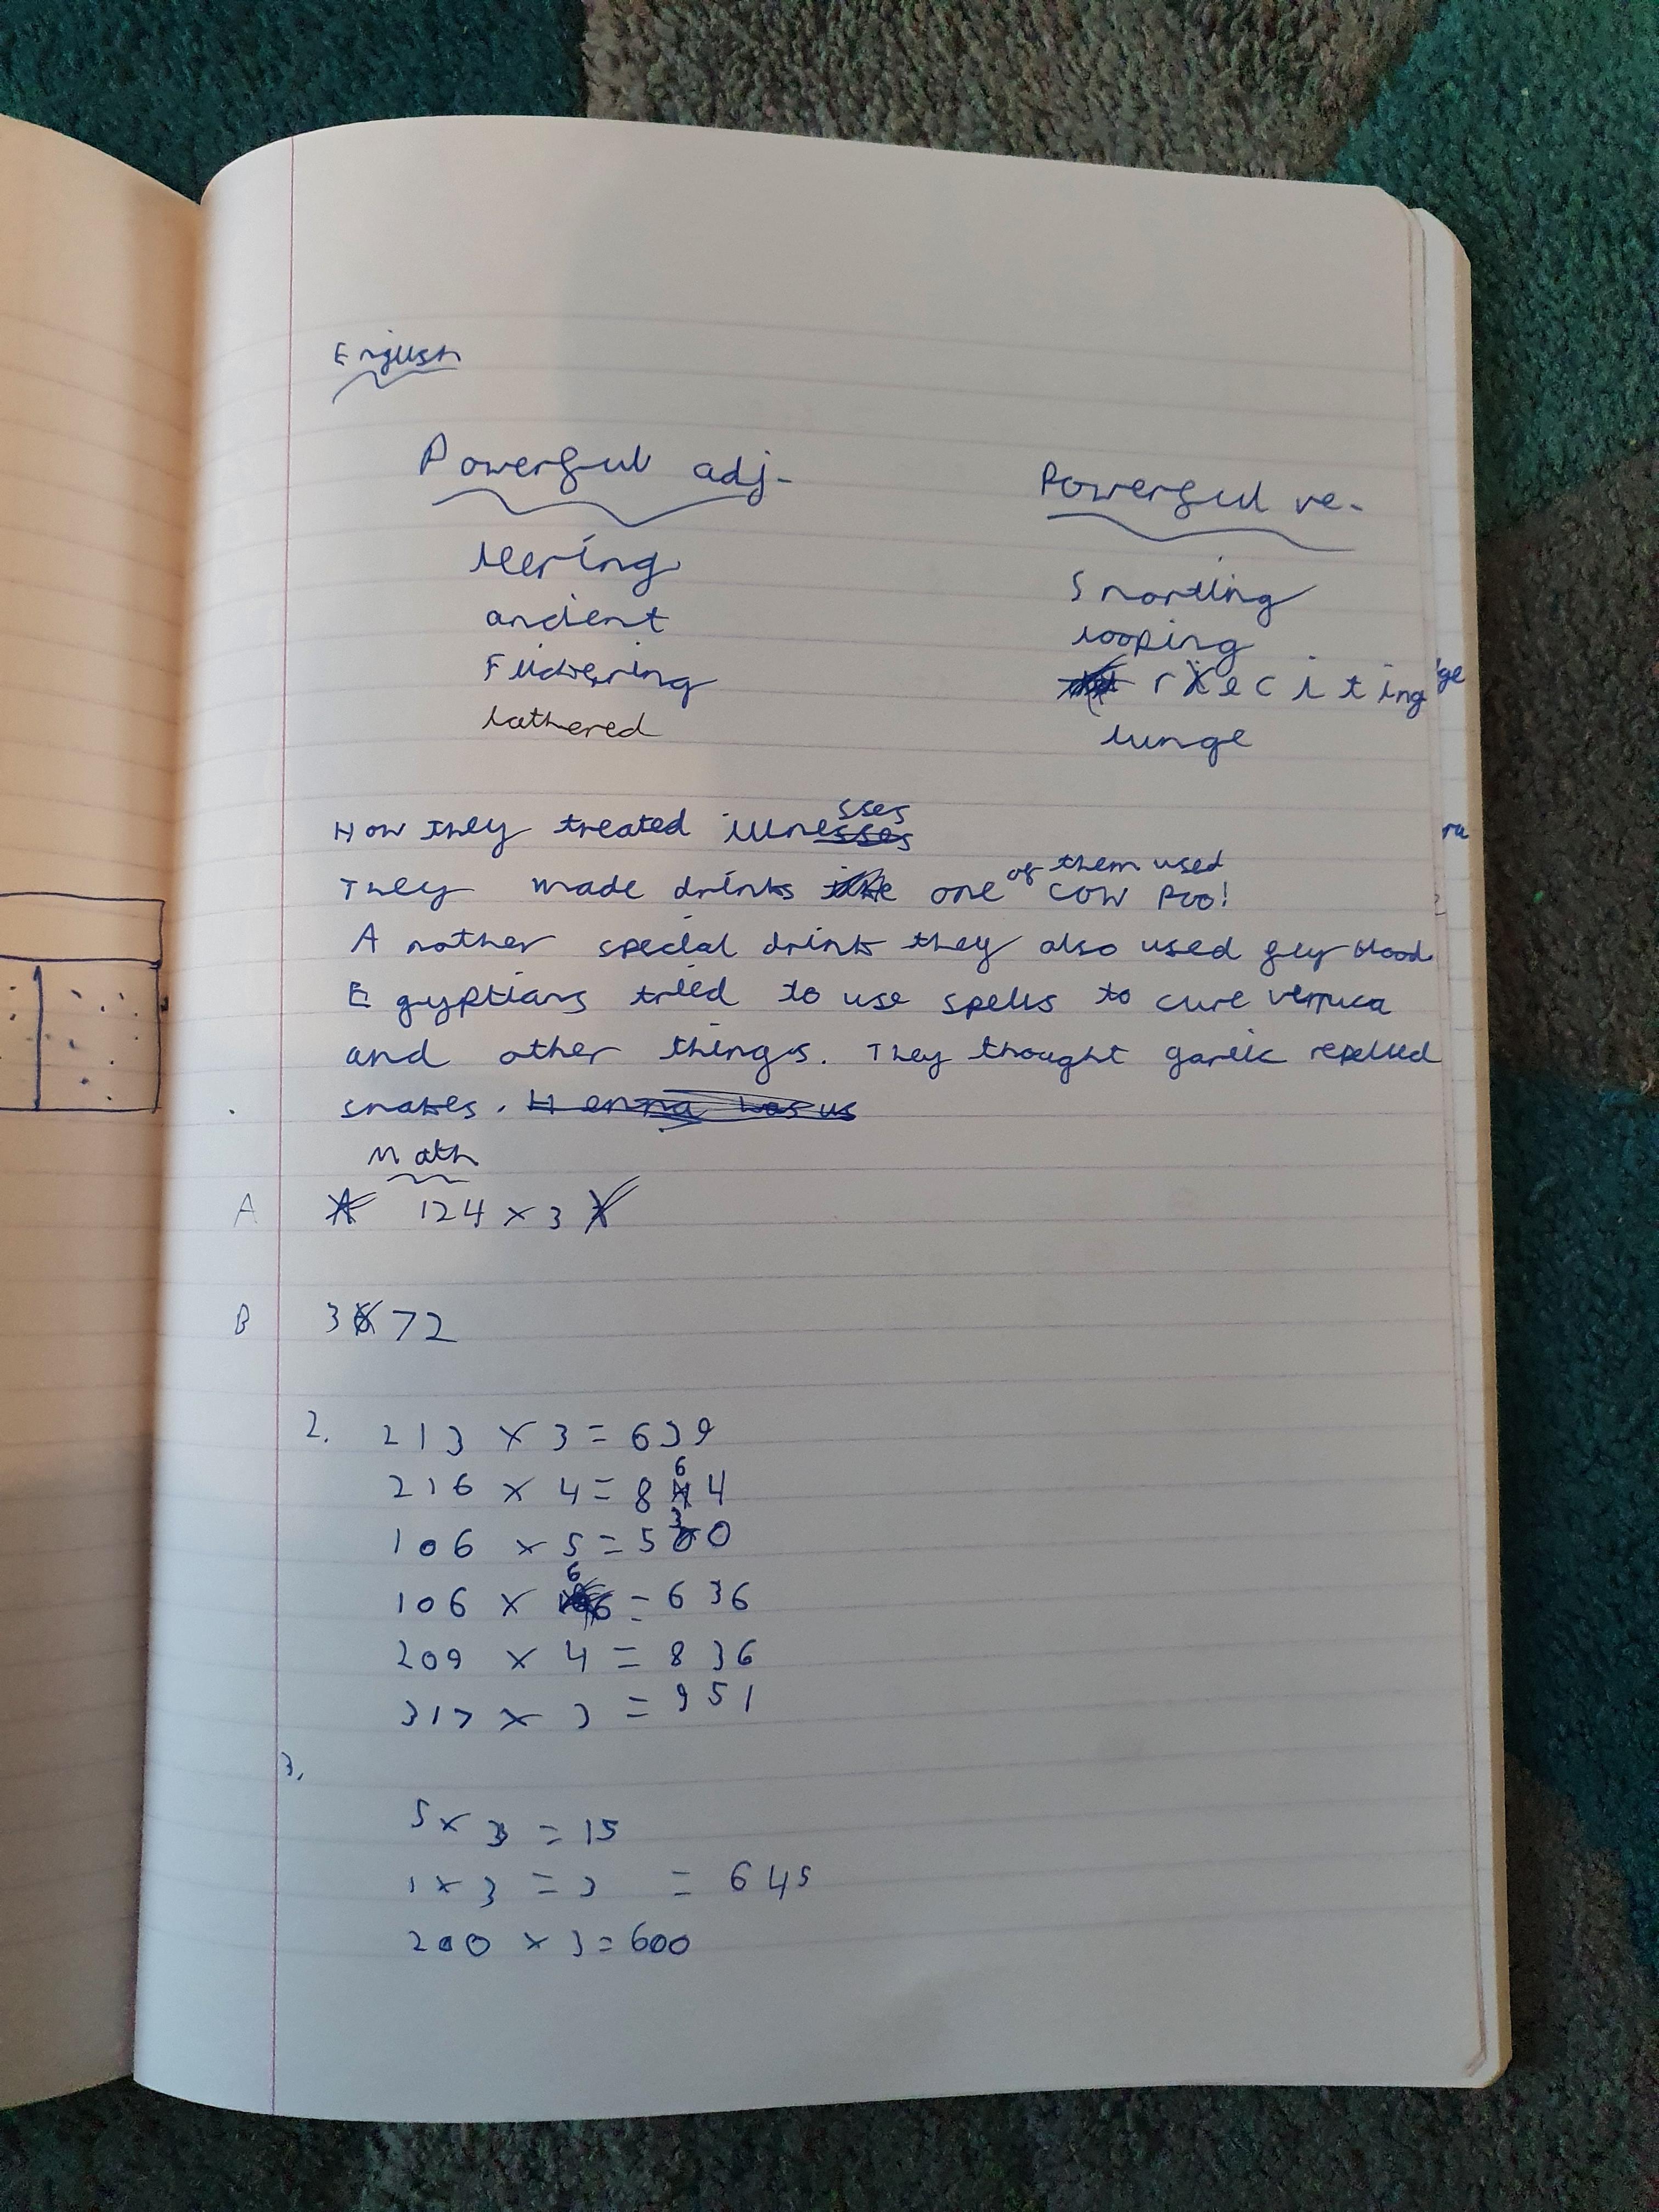 English
Powerful adj- Powerful ve-
leering Snortling
ancient looping
Flickering reciting
lathered lunge
How they treated illnesses
They made drinks one of them used cow poo!
Another special drink they also used fly blood
Egyptians tried to use spells to cure verruca
and other things. They thought garlic repelled
snakes. Henna was us
Math
A 124 x 3
B 372
2. 213 x 3 = 639
216 x 4 = 864
106 x 5 = 530
106 x 6 = 636
209 x 4 = 836
317 x 3 = 951
3.
5 x 3 = 15
1 x 3 = 3 = 645
200 x 3 = 600